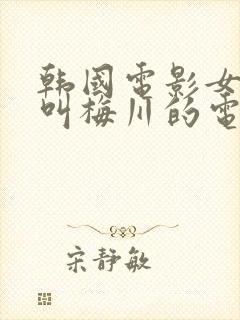 韩國電影女
叫梅川的電
宋静敏